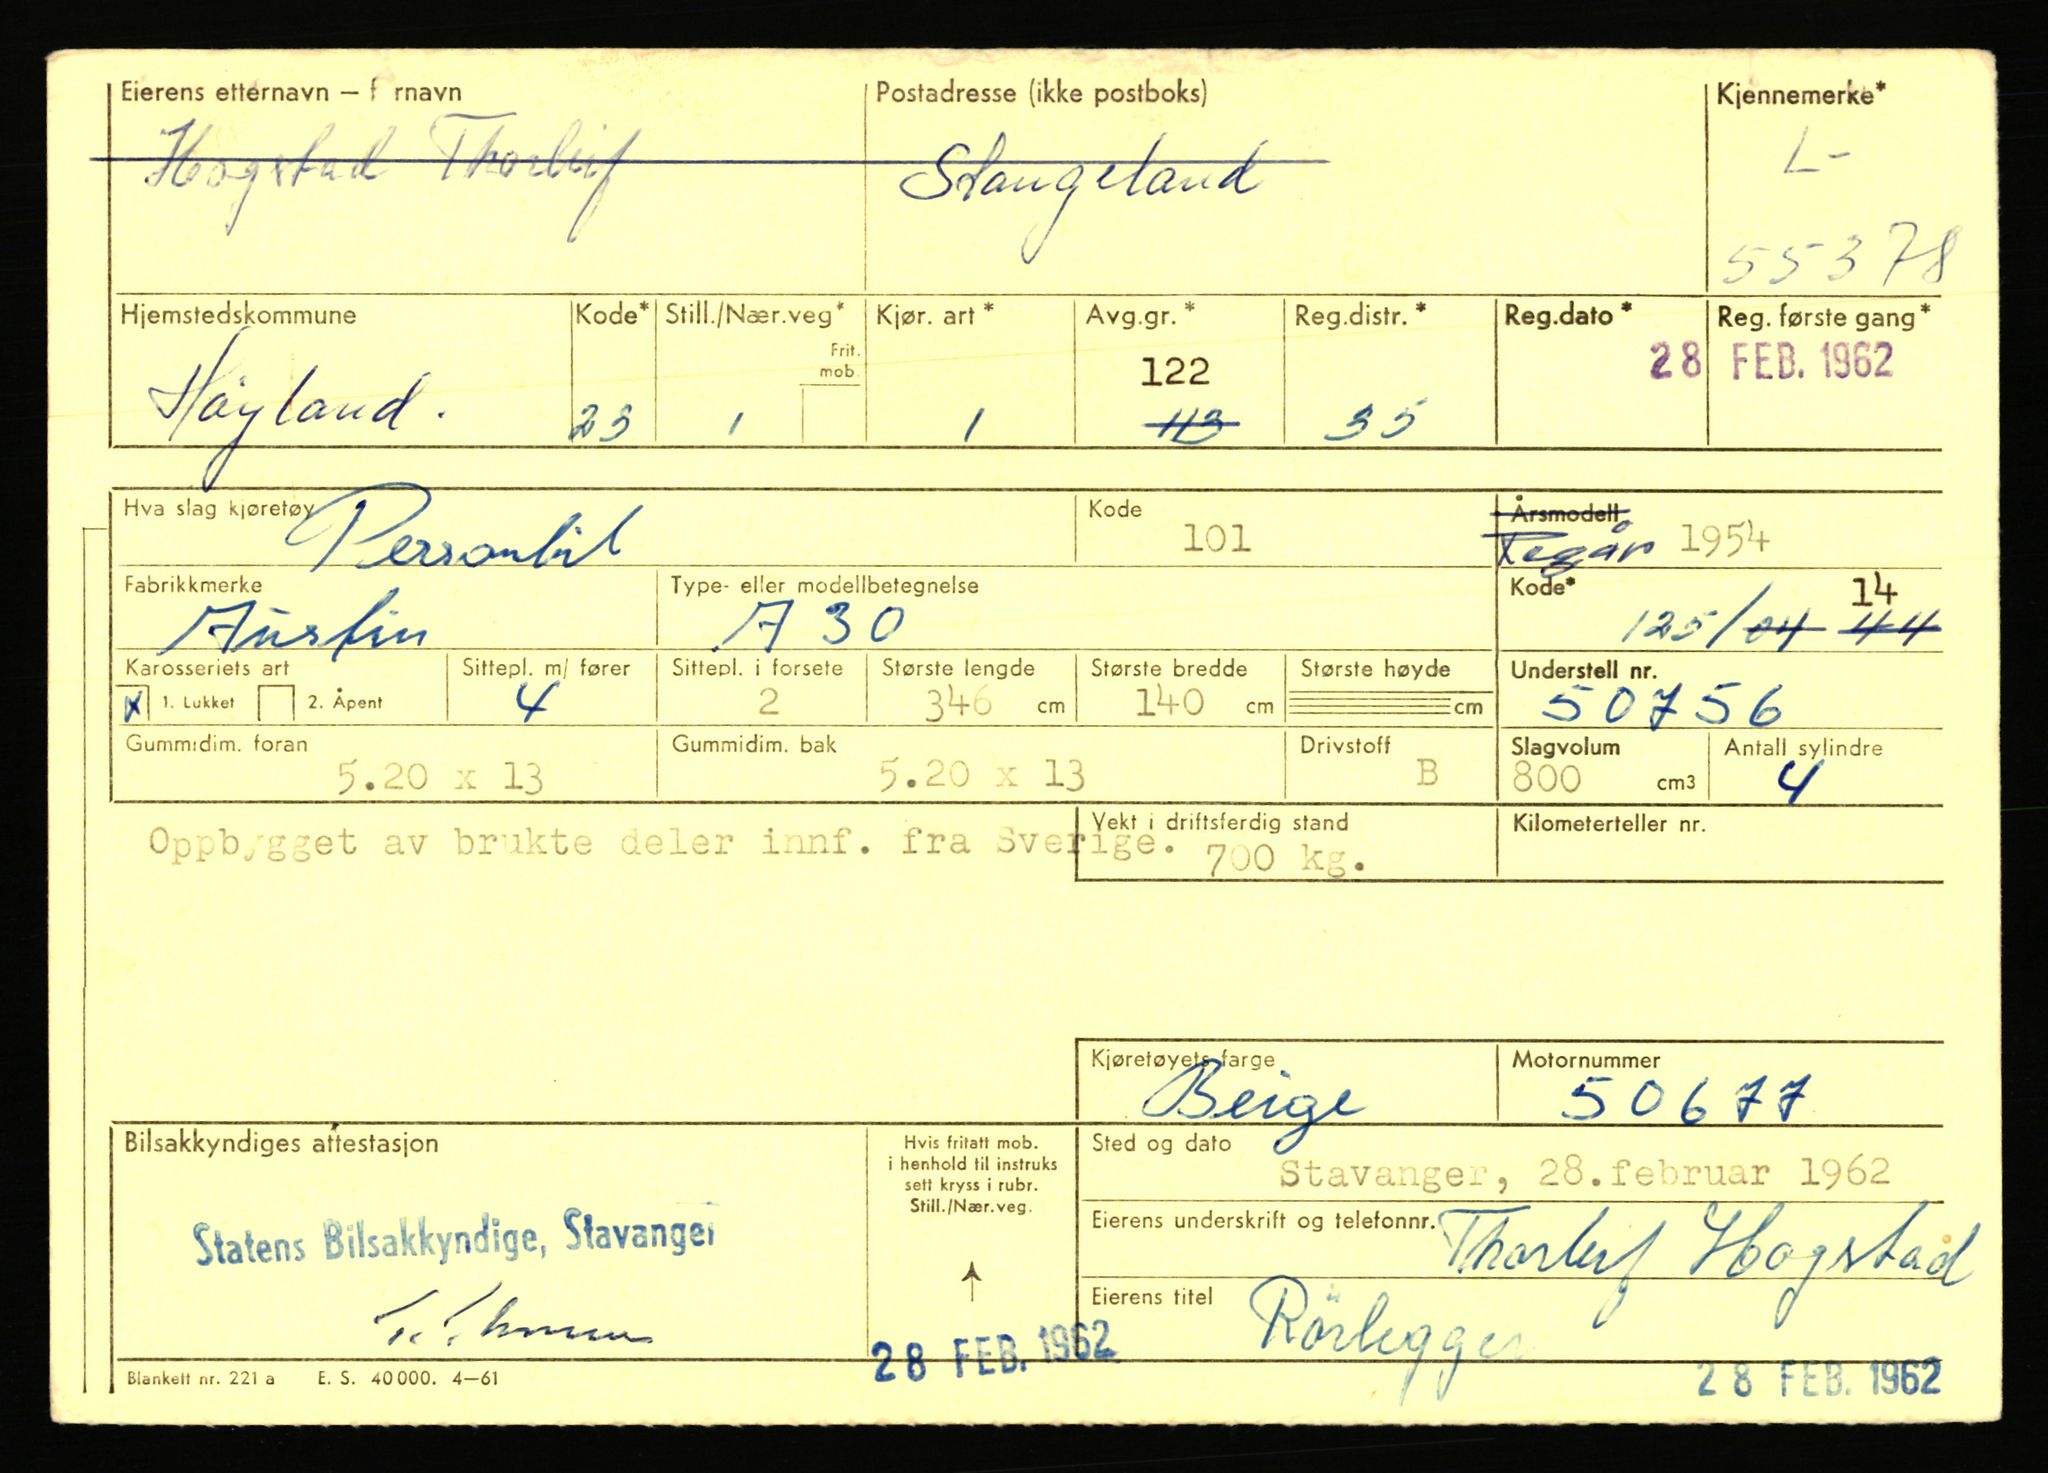 Eierens etternavn – f rnavn Postadresse (ikke postboks) Kjennemerke*
Hogstad Thorleif Stangeland L-
55378
Hjemstedskommune Kode* Still./Nær.veg* Kjør. art* Avg.gr.* Reg.distr.* Reg.dato* Reg. første gang*
Frit. mob. 122 28 FEB. 1962
Høyland. 23 1 1 113 35
Hva slag kjøretøy Personbil Kode 101 Årsmodell Regår 1954
Fabrikkmerke Type- eller modellbetegnelse Kode* 14
Austin A 30 125/04 44
Karosseriets art Sittepl. m/ fører Sittepl. i forsete Største lengde Største bredde Største høyde Understell nr.
x 1. Lukket 2. Åpent 4 2 346 cm 140 cm cm 50756
Gummidim. foran Gummidim. bak Drivstoff Slagvolum Antall sylindre
5.20 x 13 5.20 x 13 B 800 cm3 4
Vekt i driftsferdig stand Kilometerteller nr.
Oppbygget av brukte deler innf. fra Sverige. 700 kg.
Kjøretøyets farge Motornummer
Beige 50677
Bilsakkyndiges attestasjon Hvis fritatt mob. Sted og dato
i henhold til instruks
sett kryss i rubr. Stavanger, 28.februar 1962
Still./Nær.veg.
Statens Bilsakkyndige, Stavanger Eierens underskrift og telefonnr. Thorleif Hogstad
↑ Eierens titel Rörlegger
28 FEB. 1962
Blankett nr. 221 a E. S. 40 000. 4–61 28 FEB. 1962